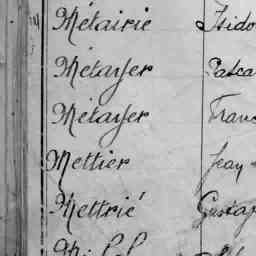 Métairie Isido
Métayer Pasca
Métayer Franc
Mettier Jean
Mettrié Gustav